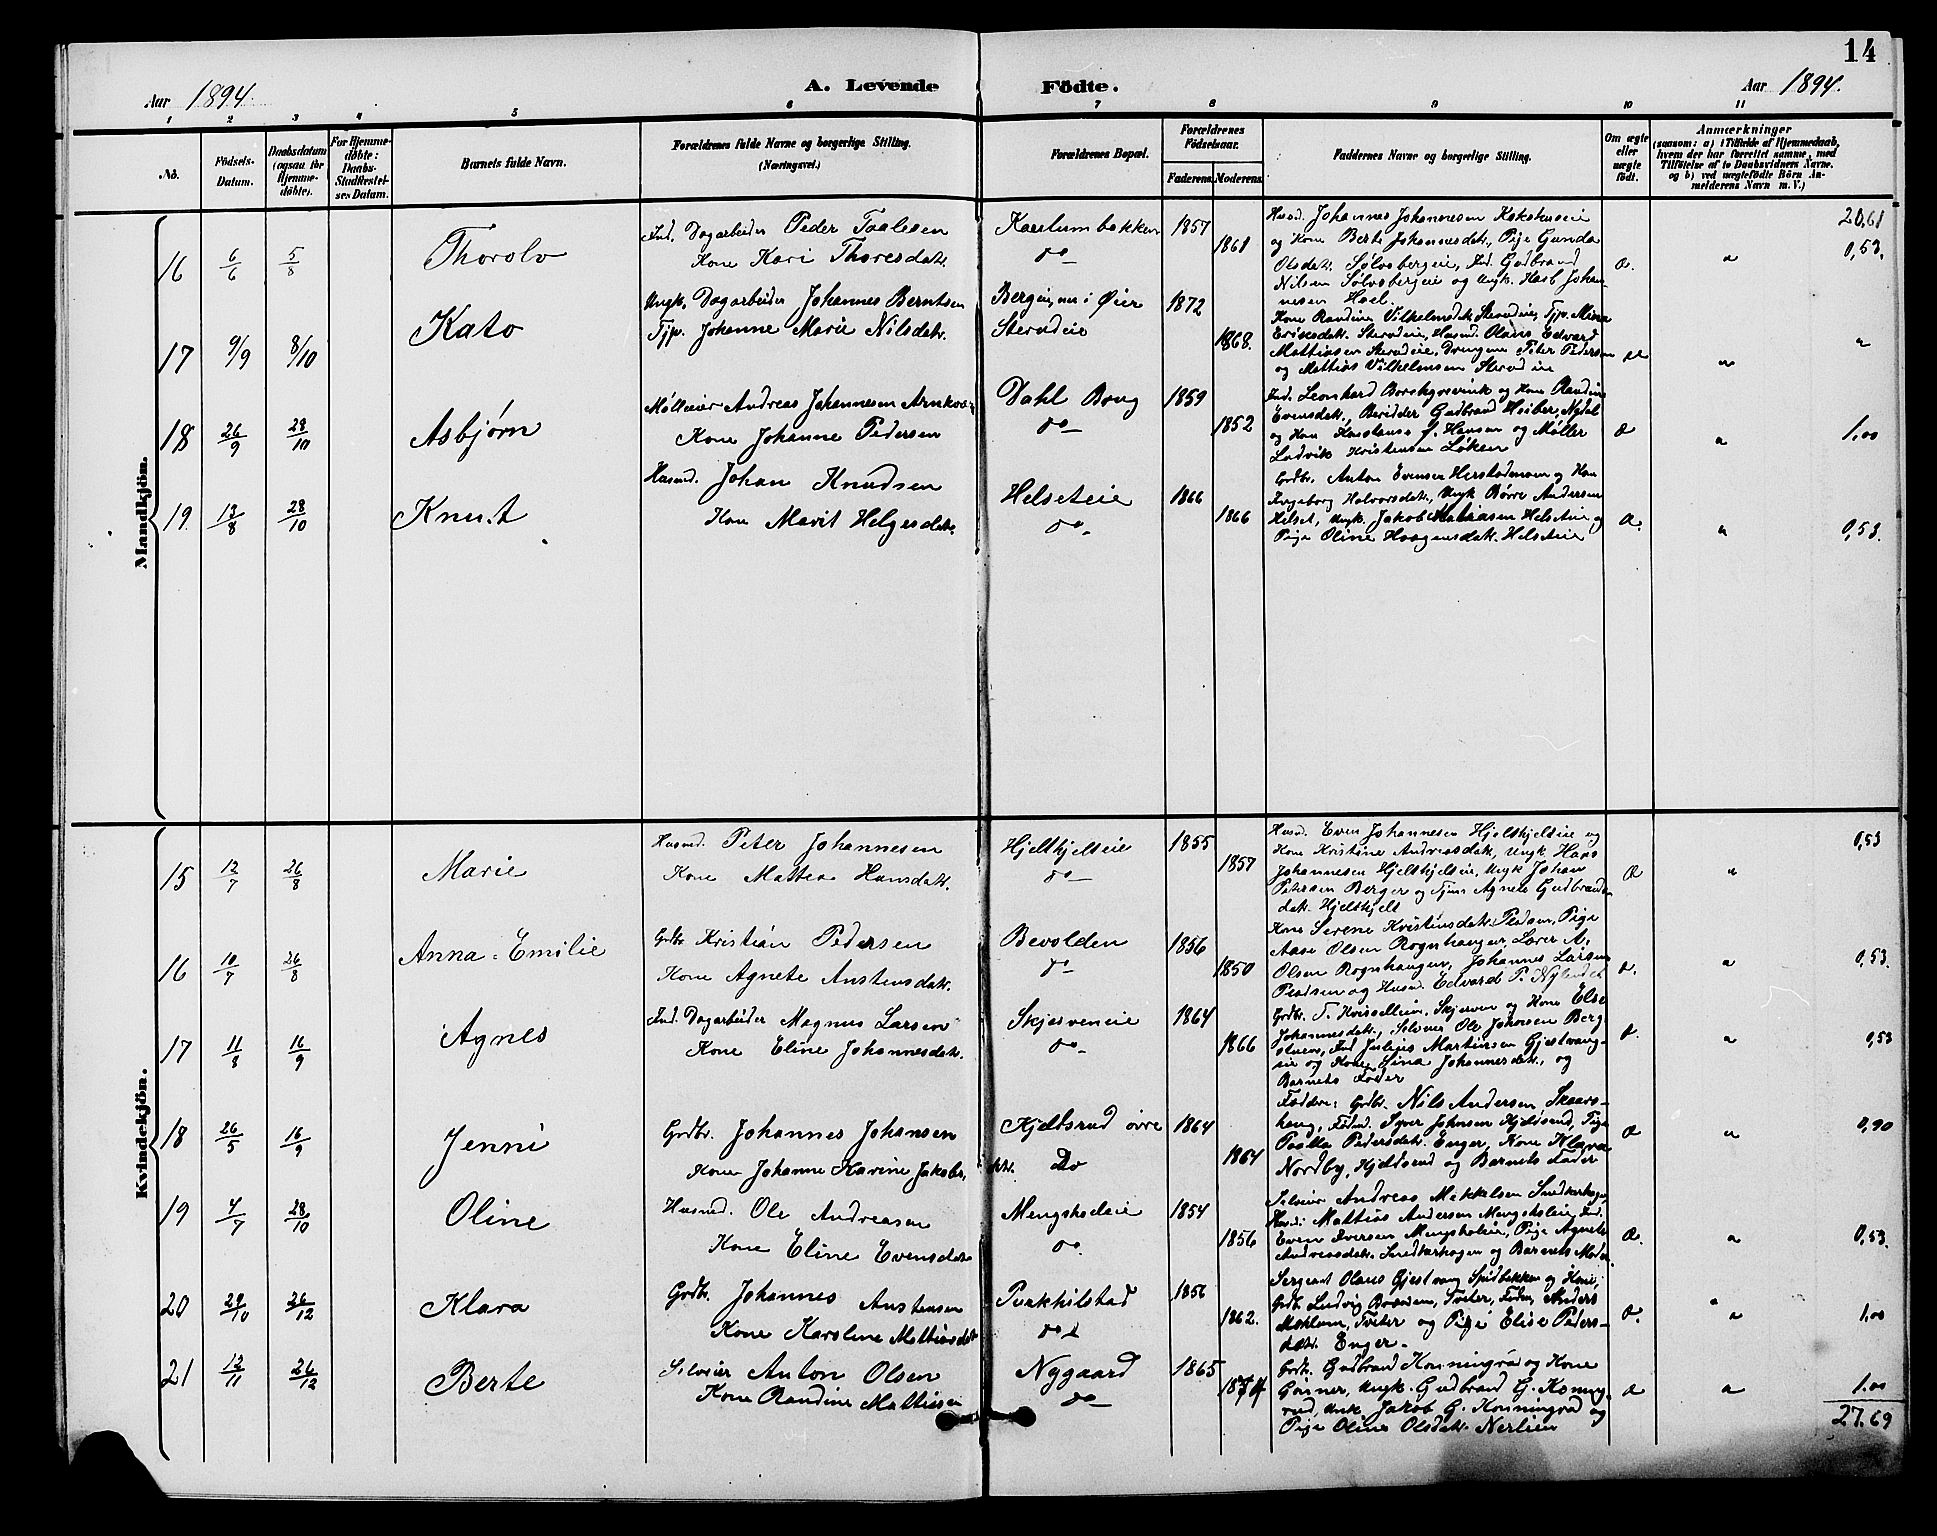 14
Aar 1894. A. Levende Födte. Aar 1894.
1 2 3 4 5 6 7 8 9 10 11
No. Födsels-Datum. Daabsdatum (ogsaa for Hjemmedøbte). For Hjemmedøbte: Daabs-Stadfæstelses Datum. Barnets fulde Navn. Forældrenes fulde Navne og borgerlige Stilling. (Næringsvei.) Forældrenes Bopæl. Forældrenes Fødselsaar. Faderens. Moderens. Faddernes Navne og borgerlige Stilling. Om ægte eller uægte født. Anmærkninger (saasom: a) i Tilfælde af Hjemmedaab, hvem der har forrettet samme, med Tilføielse af to Daabsvidners Navne. og b) ved uægtefødte Börn Anmelderens Navn m. V.)
Mandkjön.
20,61
16 6/6 5/8 Thorolv
Ind. Dagarbeider Peder Paalesen
Kone Kari Thoresdatr.
Karlumbakken
do
1857
1861
Husmd. Johannes Johannesen Kokshuseie
og Kone Berte Johannesdatr., Pige Gunda
Olsdatr. Sølvsbergeie, Ind. Gudbrand
Nilsen Sølvsbergeie og Ungk. Johan-
nesen Hoel.
0,53.
17 9/9 8/10 Kato
Ungk. Dagarbeider Johannes Berntsen
Tjp. Johanne Marie Nilsdatr.
i Øier
Steradeie
1872
1868.
Kone Randine Vilhelmsdatr. Steradeie, Tjp. Mina
Eriksdatr. Steradeie, Husmd. Olaus Edvard
Mathiasen Steradeie, Peter Pedersen
og Mathias Vilhelmsen Steradeie
18 26/9 28/10 Asbjørn
Mølleeier Andreas Johannesen
Kone Johanne Pedersen
Dahl Brug
do
1859
1852
Ind. Leonhard og Kone Randine
Evensdatr., Gudbrand Nydal
og Kone f. Hansen og Møller
Ludvik Kristensen Løken
1.00
19. 13/8 28/10 Knut
Husmd. Johan Knudsen
Kone Marit Helgesdatr.
Helseteie
do
1866
1866
Grdbr. Anton Evensen og Kone
Ingeborg Halvorsdatr., Ungk Børre Andersen
Helset, Ungk. Jakob Mathiasen Helseteie og
Pige Oline Haagensdatr. Helseteie
0,53.
Kvindekjön.
15 12/7 26/8 Marie
Husmd. Peter Johannesen
Kone Mathea Hansdatr.
Hjelthjelteie
do
1855
1857
Husmd. Even Johannesen Hjelthjelteie og
Kone Kristine Andreasdatr, Ungk Hans
Johannesen Hjelthjelteie, Ungk Johan
Petersen Berger og Agnete Gudbrands-
datr. Hjelthjelt
0,53
16 10/7 26/8 Anna Emilie
Grdbr. Kristian Pedersen
Kone Agnete Austensdatr.
Bevolden
do
1856
1850
Kone Serene Kristinsdatr. Pige
Aase Olsen Rognhaugen, Lærer A.
Olsen Rognhaugen, Johannes Larsen
og Husmd. Edvard P. Nylendet
0,53.
17 11/8 16/9 Agnes
Ind. Dagarbeider Magnus Larsen
Kone Eline Johannesdatr.
Skjerveneie
do
1864
1866
Grdbr. T. Skjerven og Kone Else
Johannesdatr., Selveier Ole Johnsen Berg-
Ind Julius Martinsen Gjestvang-
eie og Kone Sina Johannesdatr., og
Barnets Fader
0,53
18 26/5 16/9 Jenni
Grdbr. Johannes Johansen
Kone Johanne Karine Jakobs-
datr.
Kjeldsrud øvre
Do
1864
1864
Faddere: Grdbr. Nils Andersen Skaars-
haug, Syver Johnsen Kjeldsrud, Pige
Pedersdatr. Enger, Kone Klara
Nordby, Kjeldsrud og Barnets Fader
0,90
19 4/7 28/10 Oline
Husmd. Ole Andreasen
Kone Eline Evensdatr
Mengshoeleie
do.
1854
1856
Selveier Andreas Mikkelsen
Husmd. Mathias Andersen Mengsholeie, Ind.
Even Iversen Mengsholeie, Pige Agnete
Andreasdatr. og Barnets Moder
0,53.
20 29/10 26/12 Klara
Grdbr. Johannes Austensen
Kone Karoline Mathiasdatr
do
1856
1862.
Sergeant Olaus Gjestvang og Kone,
Grdbr. Ludvig Tveter, Anders
Moklum, Tveter og Pige Elise Peders-
datr. Enger.
1.00
21 12/11 26/12 Berte
Selveier Anton Olsen
Kone Randine Mathisen
Nygaard
do
1865
1874
Grdb. Gudbrand Konningrud og Kone
Gunner, Ungk. Gudbrand G. Koning-
rud, Ungk Jakob G. Konningrud og
Pige Oline Olsdatr. Nerlien
1.00
27.69